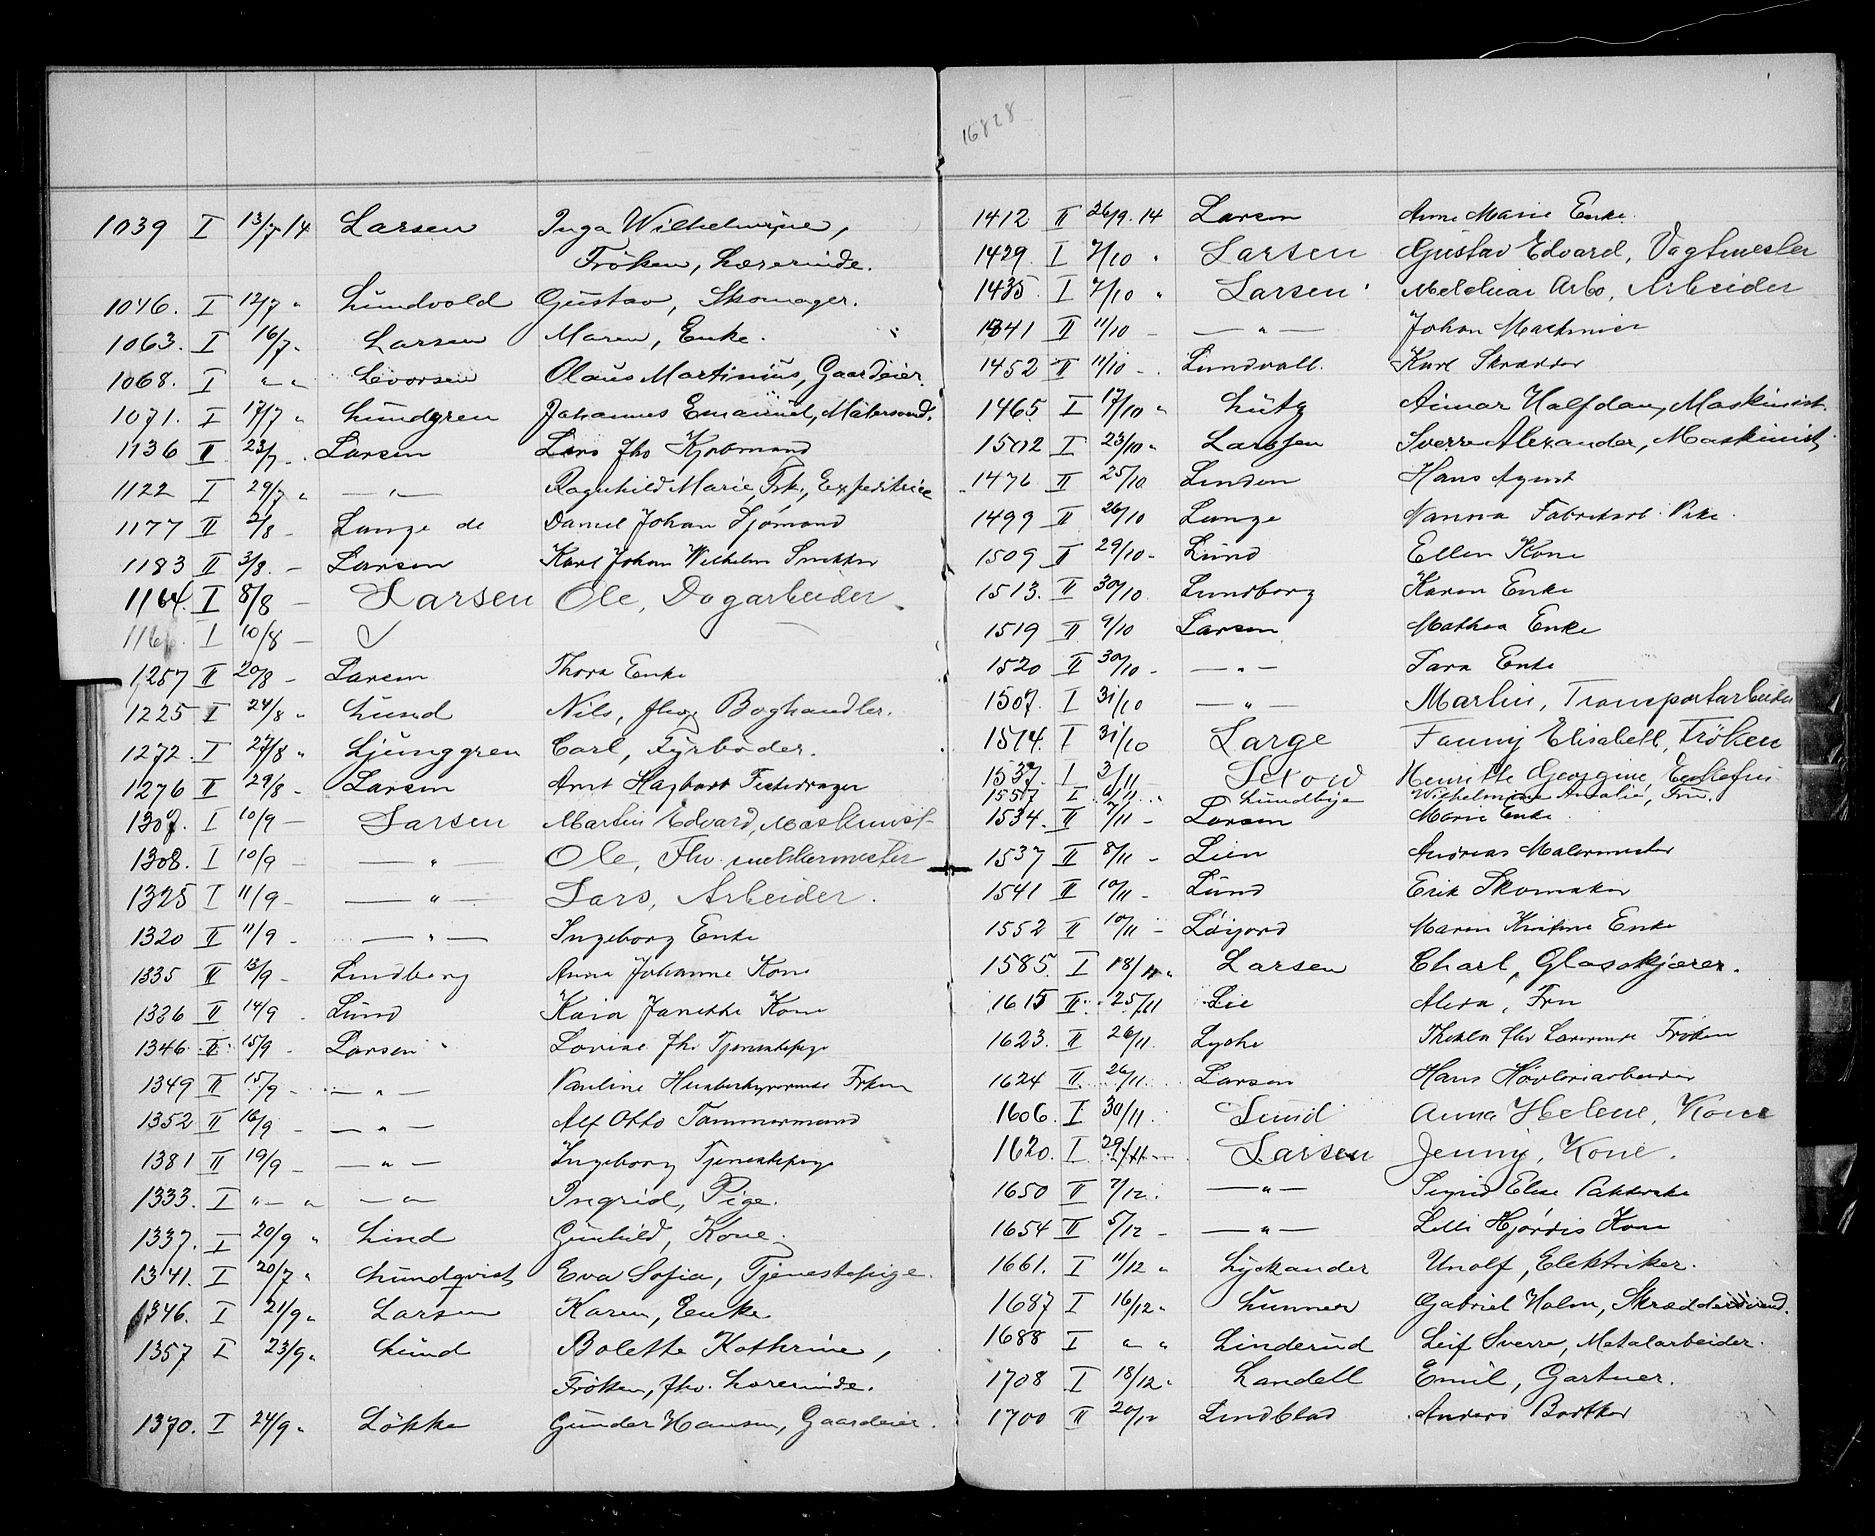 1039 I 13/7 14 Larsen Inga Wilhelmine,
Frøken, Lærerinde.
1046. I 12/7 „ Lundvold Gustav, Skomager.
1063. I 16/7 „ Larsen Maren, Enke.
1068. I „ „ Levorsen Olaus Martinius, Gaardeier.
1071. I 17/7 „ Lundgren Johannes Emanuel, Malersvend.
1136 II 23/7 - Larsen Lars fhv Kjøbmand
1122 I 29/7 „ — „ — Ragnhild Marie, Frk., Expeditrice
1177 II 2/8 - Lange de Daniel Johan Sjömand
1183 II 3/8. - Larsen Karl Johan Wilhelm Snekker
1164. I 8/8 - Larsen Ole, Dagarbeider.
116 I 10/8 -
1257 II 20/8 - Larsen Thora Enke
1225 I 24/8 „ Lund Nils, fhv. Boghandler.
1272. I 27/8 „ Ljunggren Carl, Fyrbøder.
1276 II 29/8 - Larsen Arnt Hagbart
1307. I 10/9 - Larsen Martin Edvard, Maskinist
1308. I 10/9 - — „ — Ole, Fhv.
1325 I 11/9 - — „ — Lars, Arbeider.
1320 II 11/9 - — „ — Ingeborg Enke
1335 II 13/9 - Lindberg Anna Johanne Kone
1326 II 14/9 - Lund Kaia Janette Kone
1346 II 15/9 - Larsen Lovise fhv Tjenestepige
1349 II 15/9 - — „ — Pauline Frken
1352 II 16/9 - — „ — Alf Otto Tømmermand
1381 II 19/9 - — „ — Ingeborg Tjenestepige
1333. I „ — „ — „ — Ingrid, Pige.
1337. I 20/9 „ Lind Gunhild, Kone.
1341. I 20/7 „ Lundqvist Eva Sofia, Tjenestepige.
1346. I 21/9 „ Larsen Karen, Enke.
1357 I 23/9 „ Lund Bolette Kathrine,
Frøken, fhv. Lærerinde.
1370. I 24/9 „ Løkke Gunder Hansen, Gaardeier.
16828
1412 II 26/9. 14 Larsen Anne Marie Enke.
1429. I 7/10 „ Larsen Gustav Edvard, Vagtmester
1435 I 7/10 „ Larsen Melchior Arbo, Arbeider
1341 II 11/10 - — „ — Johan
1452 II 11/10 - Lundvall. Karl Skrædder
1465. I 17/10 „ Lütz Aimar Halfdan, Maskinist.
1502 I 23/10 „ Larssen Sverre Alexander, Maskinist
1476 II 25/10 Linden Hans Agent
1499 II 26/10 Lange Nanna Fabrikarb. Pike.
1509 II 29/10 - Lund Ellen Kone
1513. II 30/10 Lundborg Karen Enke
1519 II 9/10 Larsen Mathea Enke
1520 II 30/10 - — „ — Sara Enke
1507. I 31/10 — „ — Martin, Transportarbeider
1514. I 31/10 Large Fanny Elisabeth, Frøken
1537. I 3/11 Henriette Georgine,
1557 I 6/11 „ Lundbye Wilhelmine Amalie, Fru.
1534. II 7/11 - Larsen Marie Enke
1537 II 8/11 - Lien Andreas Malermester
1541 II 10/11 - Lund Erik Skomaker
1552 II 10/11 - Løijord Maren Kirstine Enke
1585. I 18/11 „ Larsen Charl, Glasskjærer.
1615 II 25/11 Lie Alexa, Fru
1623. II 26/11. Lyche Thekla fhv Lærerinde Frøken
1624 II 26/11. Larsen Hans Høvleriarbeider
1606. I 30/11. Lund Anna Helene, Kone
1620. I 29/11 Larsen Jenny, Kone.
1650 II 7/12. — „ — Sigrid Elise Pakkerske
1654 II 5/12 - — „ — Lilli Hjørdis Kone
1661. I 11/12 „ Lyckander Unolf, Elektriker.
1687 I 16/12 „ Lunner Gabriel Holm, Skræddersvend.
1688 I „ „ Linderud Leif Sverre, Metalarbeider.
1708 I 18/12 „ Landell Emil, Gartner.
1700 II 20/12 Lindblad Anders